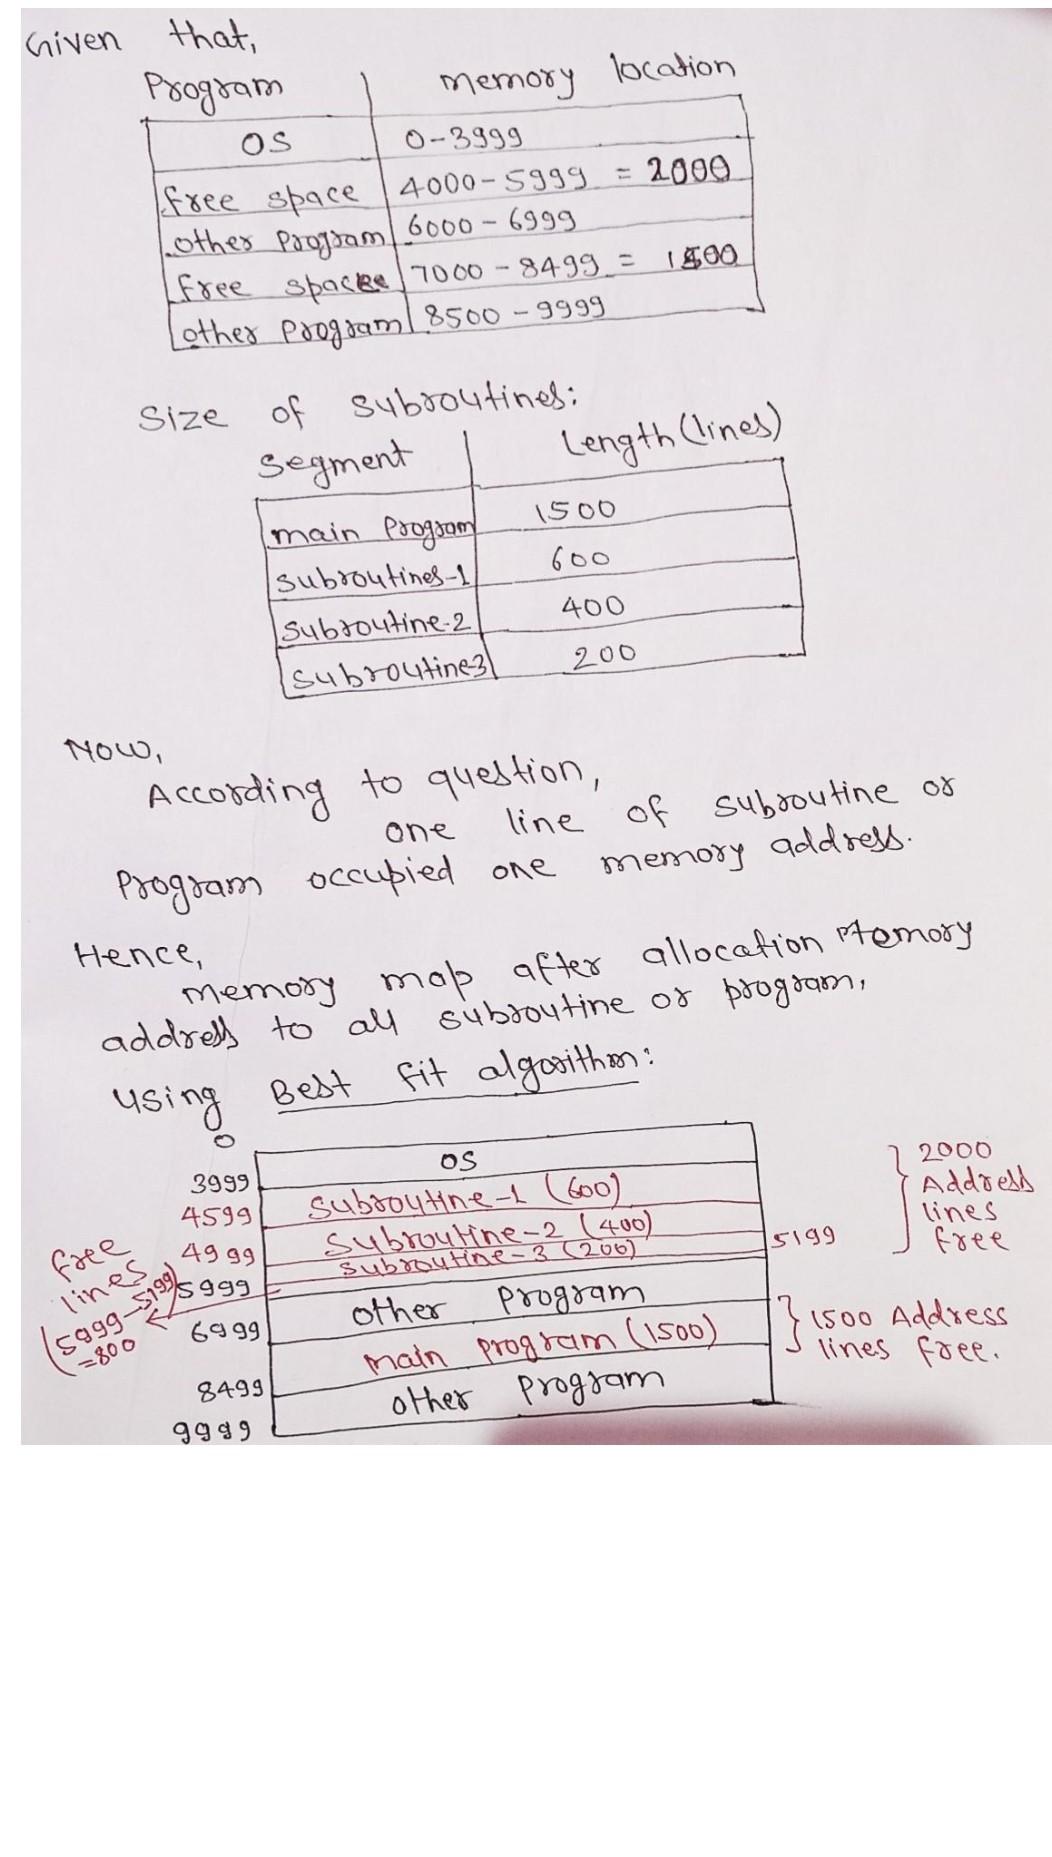 Given that,
Program | memory location
OS | 0-3999
free space | 4000-5999 = 2000
other program | 6000-6999
free space | 7000-8499 = 1500
other program | 8500-9999
Size of subroutines:
segment | Length (lines)
main program | 1500
subroutines-1 | 600
subroutine-2 | 400
subroutine3 | 200
Now,
According to question,
one line of subroutine or
program occupied one memory address.
Hence,
memory map after allocation memory
address to all subroutine or program,
using Best fit algorithm:
0
OS
3999
subroutine-1 (600)
4599
subroutine-2 (400)
4999
subroutine-3 (200)
5199
5999
other program
6999
main program (1500)
8499
other program
9999
2000
Address
lines
free
1500 Address
lines free.
free
lines
(5999-5199)
=800